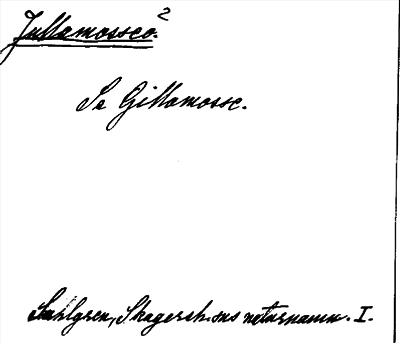 Jullamossco.²
Se Gillamosse.
Sahlgren, Skagersh.sns naturnamn. I.